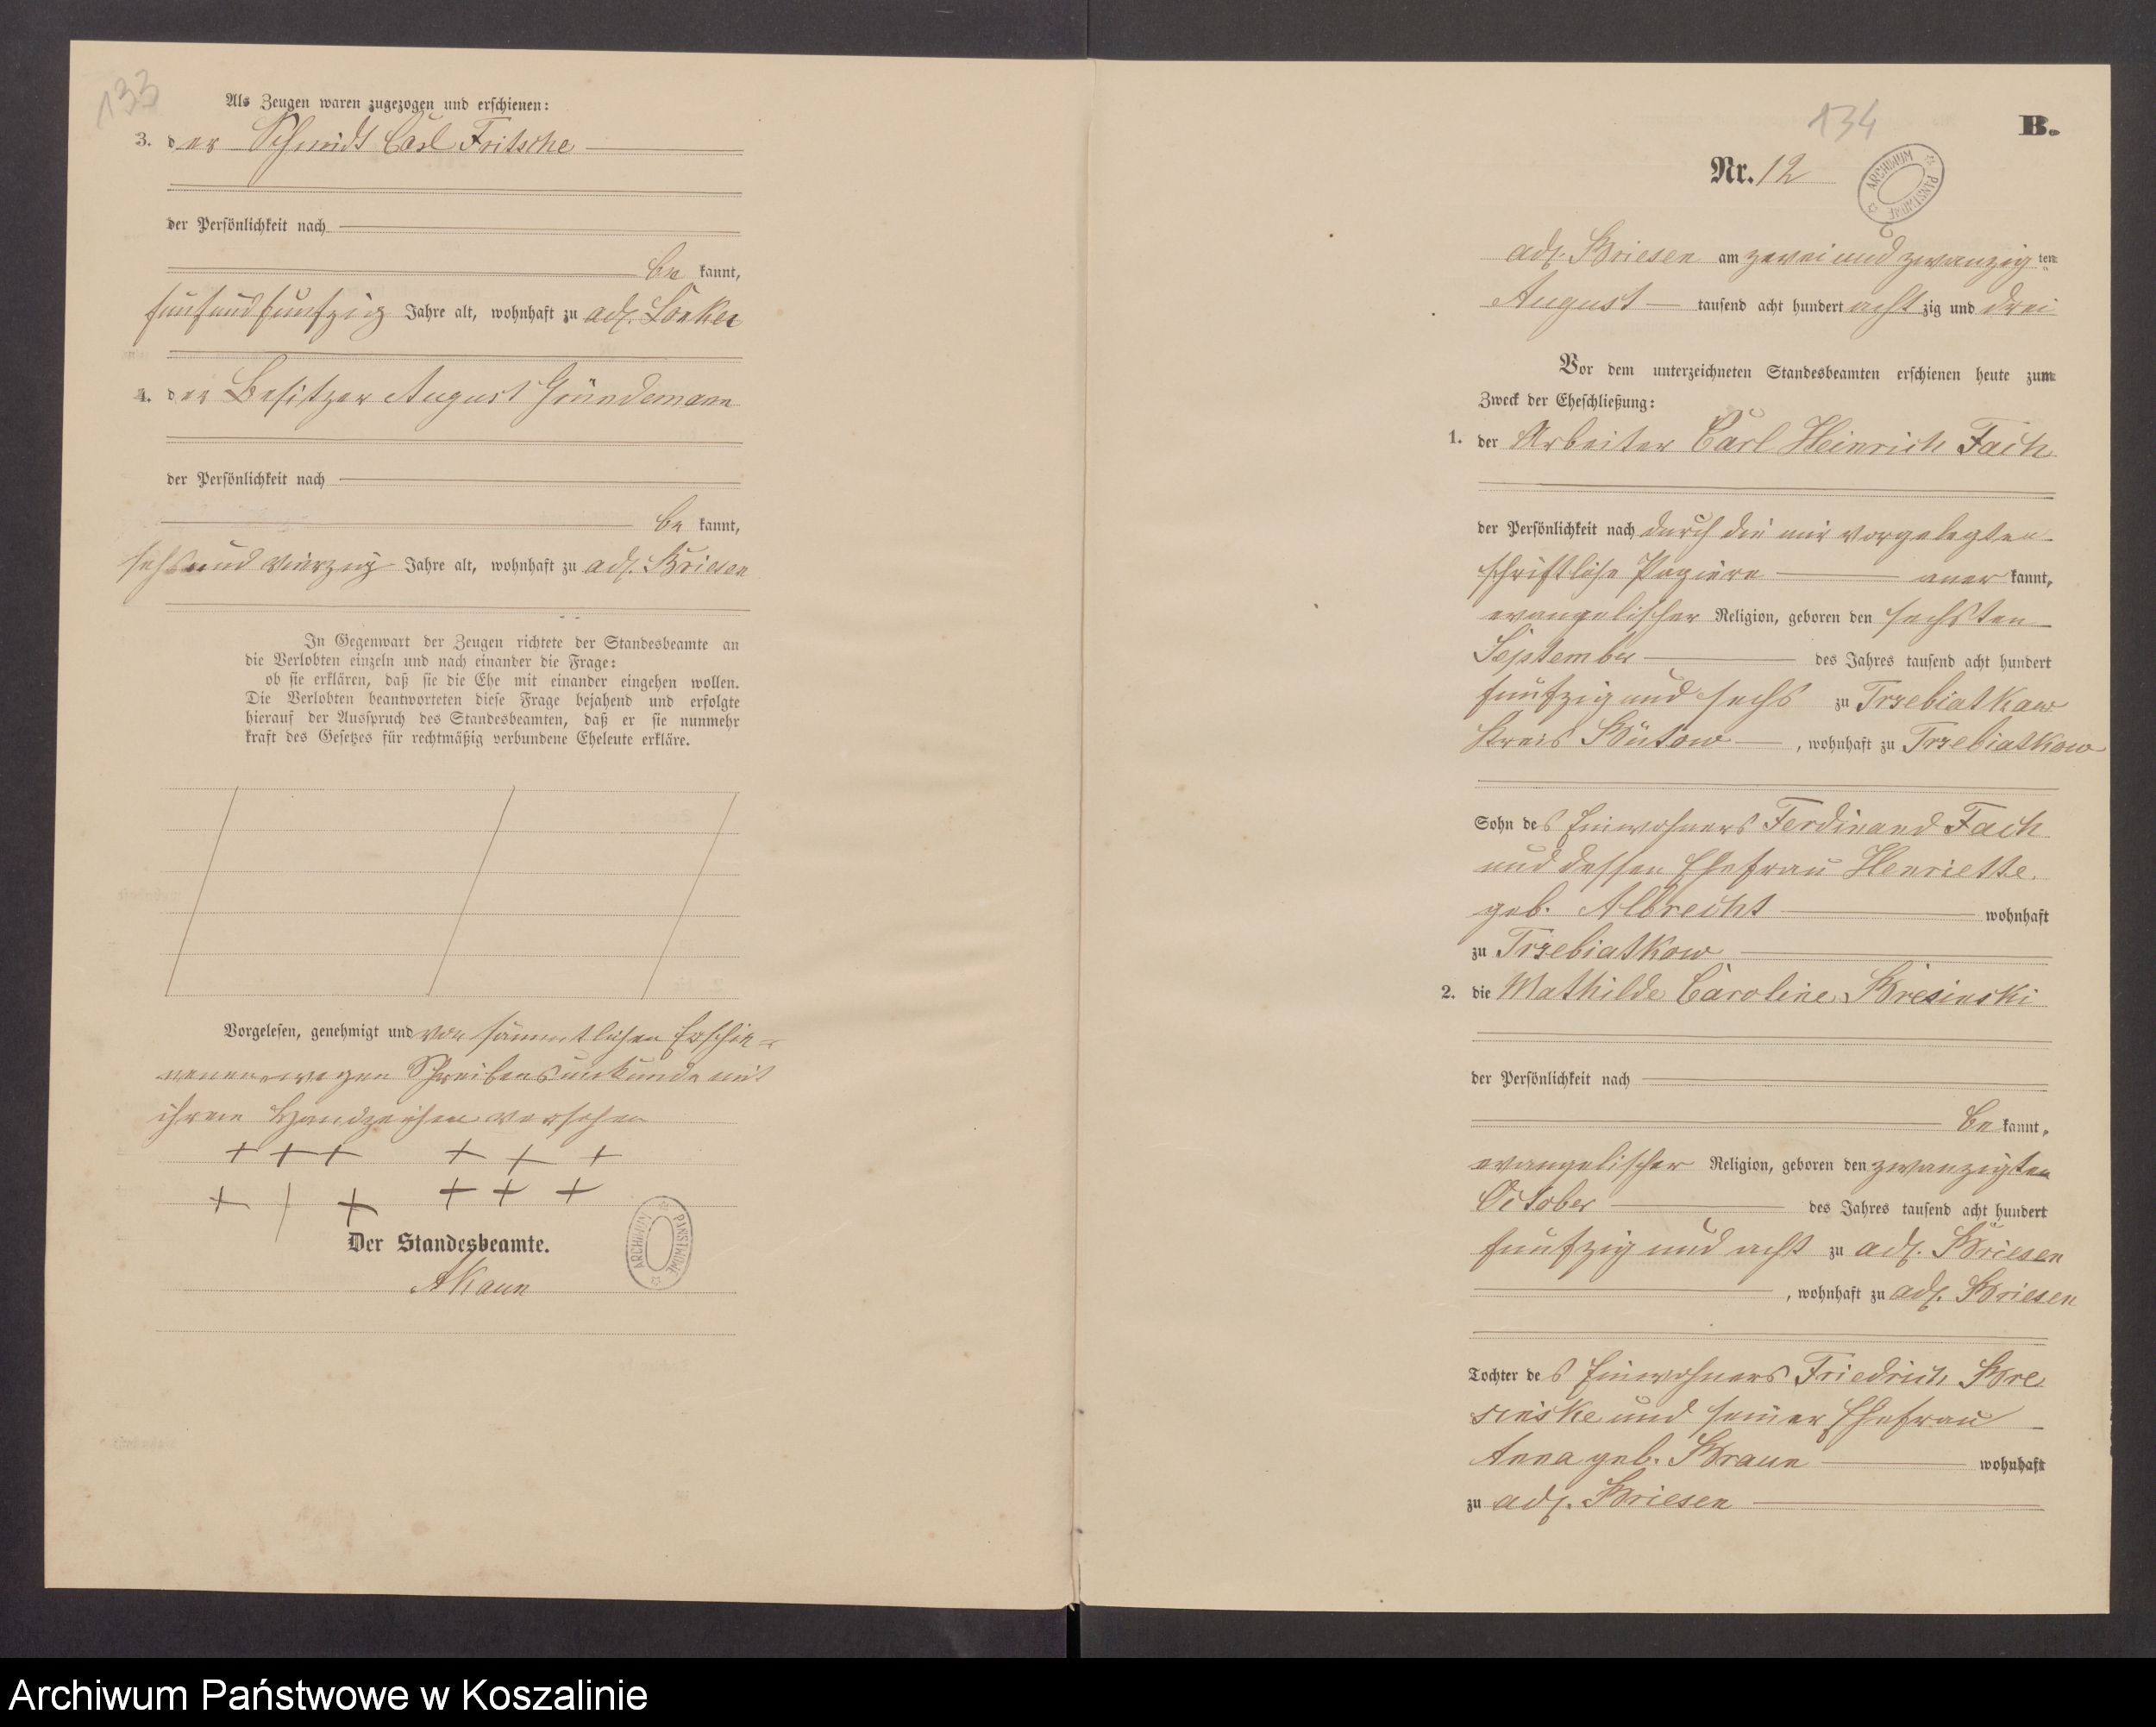 133
Als Zeugen waren zugezogen und erschienen:
3. der Schmidt Carl Fritsche
der Persönlichkeit nach
be kannt,
fünfundfünfzig Jahre alt, wohnhaft zu adl.
4. der Besitzer August Gründemann
der Persönlichkeit nach
be kannt,
sechsundvierzig Jahre alt, wohnhaft zu adl. Briesen
In Gegenwart der Zeugen richtete der Standesbeamte an
die Verlobten einzeln und nach einander die Frage:
ob sie erklären, daß sie die Ehe mit einander eingehen wollen.
Die Verlobten beantworteten diese Frage bejahend und erfolgte
hierauf der Ausspruch des Standesbeamten, daß er sie nunmehr
kraft des Gesetzes für rechtmäßig verbundene Eheleute erkläre.
Vorgelesen, genehmigt und von sämmtlichen Erschie=
nenen wegen Schreibensunkunde mit
ihrem Handzeichen versehen
+++ +++
+++ +++
Der Standesbeamte.
ARCHIWUM PAŃSTWOWE
AKaun
134
B.
Nr. 12
ARCHIWUM PAŃSTWOWE
adl. Briesen am zwei und zwanzig ten
August tausend acht hundert acht zig und drei
Vor dem unterzeichneten Standesbeamten erschienen heute zum
Zweck der Eheschließung:
1. der Arbeiter Carl Heinrich Fach
der Persönlichkeit nach durch die mir vorgelegten
schriftliche Papiere aner kannt,
evangelischer Religion, geboren den sechsten
September des Jahres tausend acht hundert
fünfzig und sechs zu Trzebiatkow
Kreis Bütow, wohnhaft zu Trzebiatkow
Sohn des Einwohners Ferdinand Fach
und dessen Ehefrau Henriette
geb. Albrecht wohnhaft
zu Trzebiatkow
2. die Mathilde Caroline Bresinski
der Persönlichkeit nach
be kannt,
evangelischer Religion, geboren den zwanzigten
October des Jahres tausend acht hundert
fünfzig und acht zu adl. Briesen
, wohnhaft zu adl. Briesen
Tochter des Einwohners Friedrich Bre
sinske und seiner Ehefrau
Anna geb. Braun wohnhaft
zu adl. Briesen
Archiwum Państwowe w Koszalinie